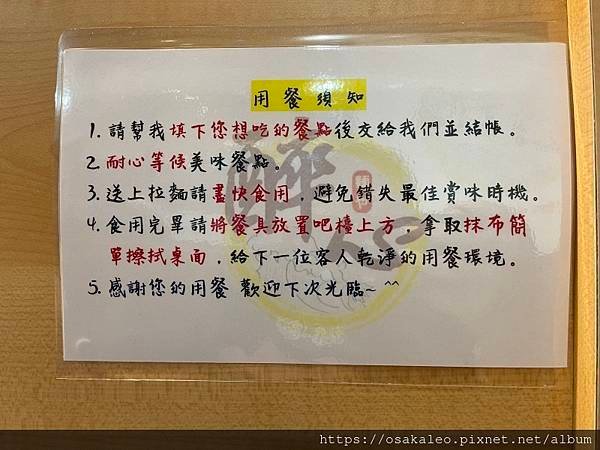 用餐須知
1. 請幫我填下您想吃的餐點後交給我們並結帳。
2. 耐心等候美味餐點。
3. 送上拉麵請盡快食用，避免錯失最佳賞味時機。
4. 食用完畢請將餐具放置吧檯上方，拿取抹布簡
單擦拭桌面，給下一位客人乾淨的用餐環境。
5. 感謝您的用餐 歡迎下次光臨~ ^^
https://osakaleo.pixnet.net/album